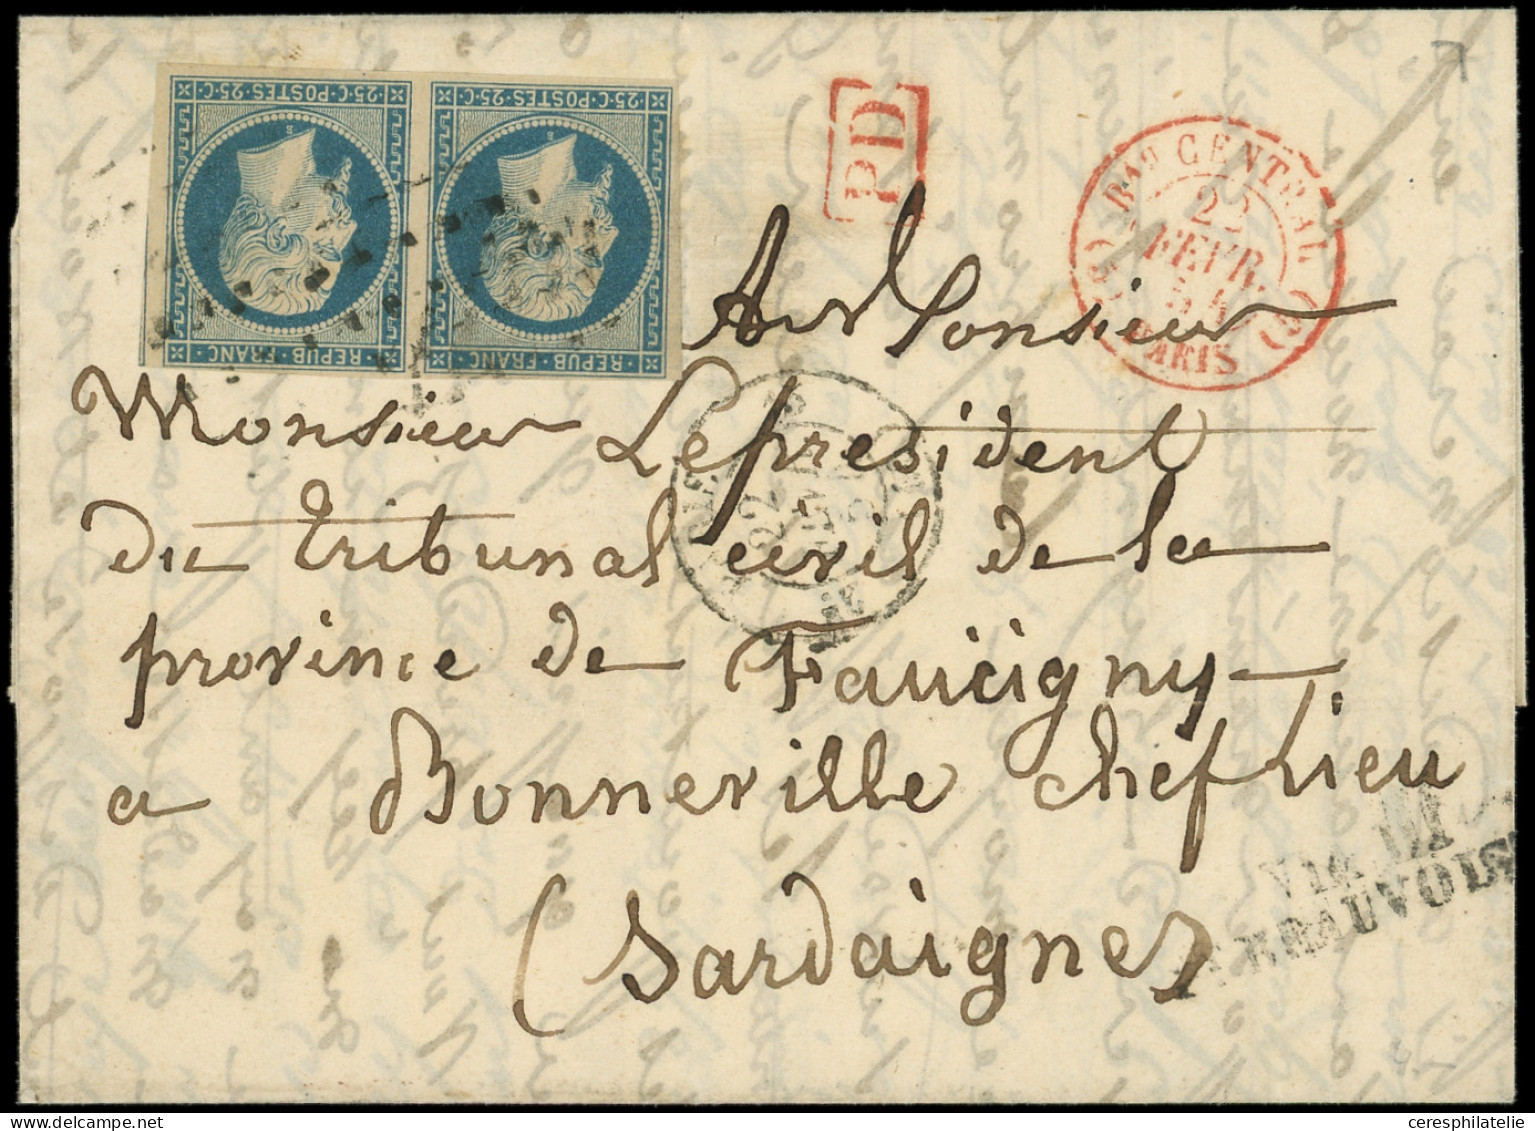 25·C·POSTES·25·C·
REPUB·FRANC·
25·C·POSTES·25·C·
REPUB·FRANC·
PD
Bau CENTRAL
FEVR.
54
PARIS
A Monsieur
Monsieur Le president
du tribunal civil de la
province de Faucigny
a Bonneville chef Lieu
(Sardaigne)
22
Via
BEAUVOISIN
ceresphilatelie.com